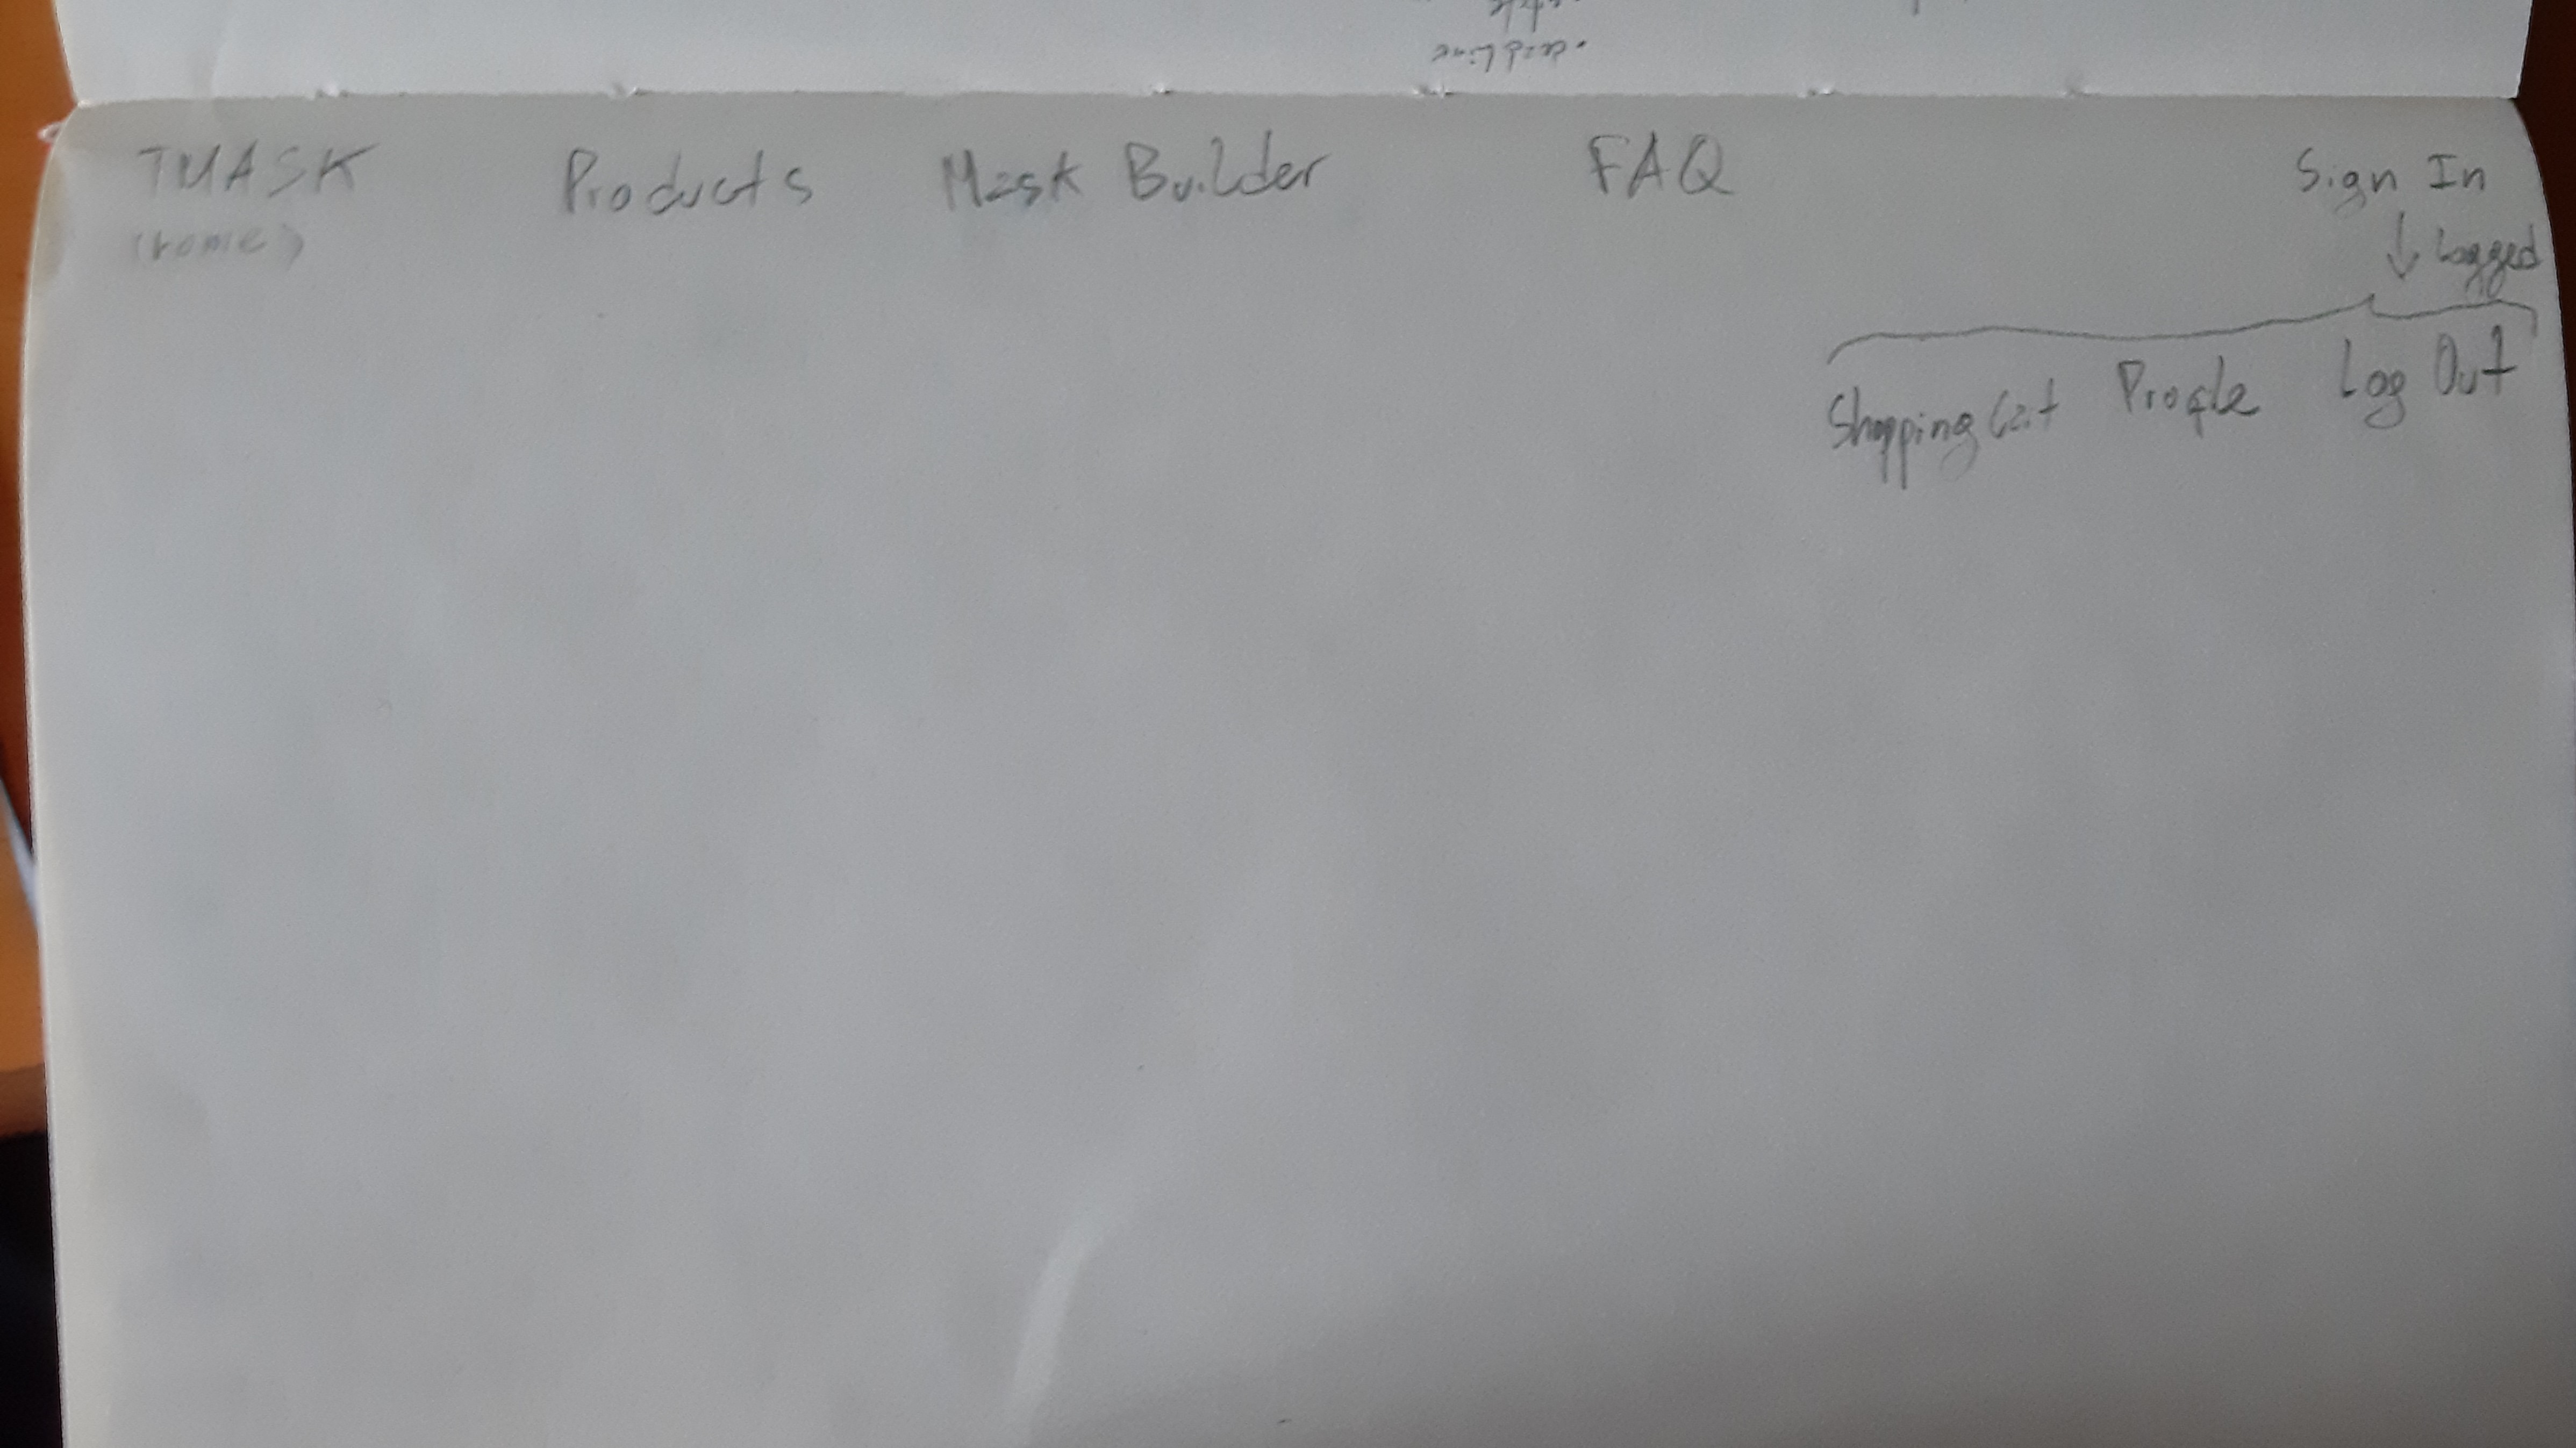 deadline
TMASK Products Mask Builder FAQ Sign In
(home)
Logged
Shopping Cart Profile Log Out